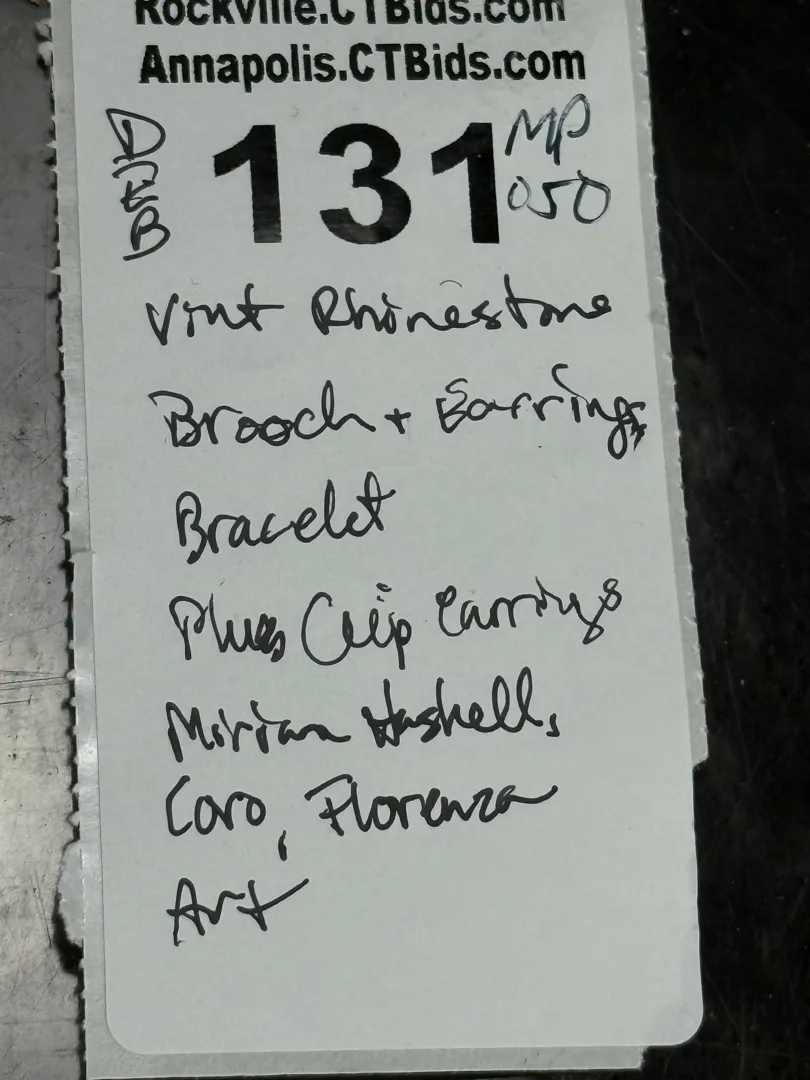 Rockville.CTBids.com
Annapolis.CTBids.com
131
MP
050
Vint Rhinestone
Brooch + Earrings
Bracelet
Plus Clip earrings
Miriam Haskell,
Coro, Florenza
Art